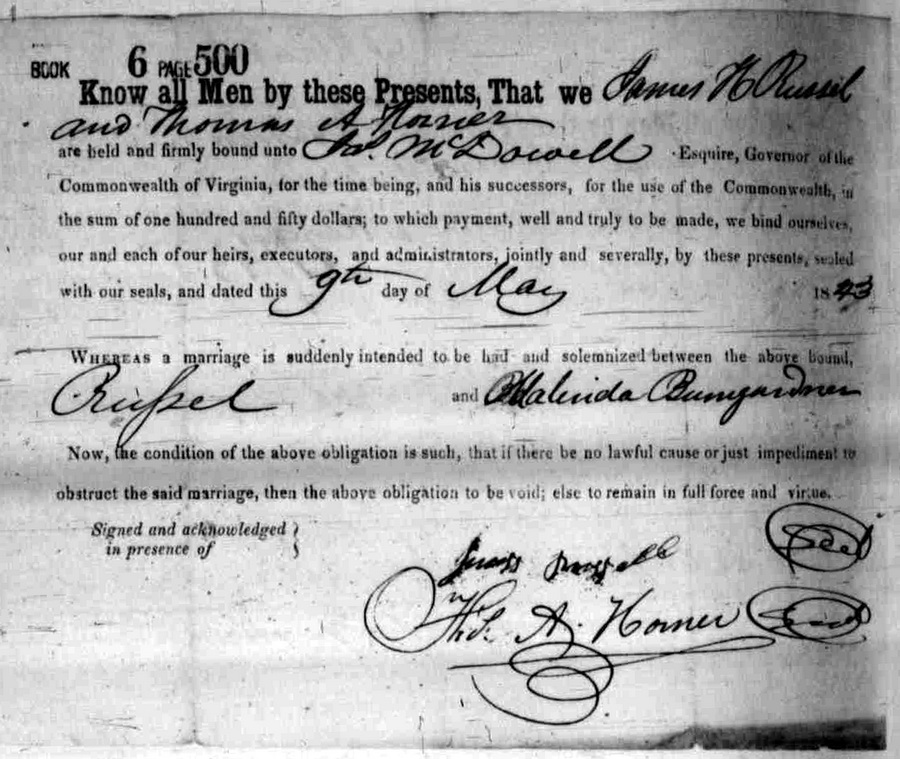 BOOK 6 PAGE 500
Know all Men by these Presents, That we James H Russel
and Thomas A Horner
are held and firmly bound unto Jas. McDowell Esquire, Governor of the
Commonwealth of Virginia, for the time being, and his successors, for the use of the Commonwealth, in
the sum of one hundred and fifty dollars; to which payment, well and truly to be made, we bind ourselves,
our and each of our heirs, executors, and administrators, jointly and severally, by these presents, sealed
with our seals, and dated this 9th day of May 1843
WHEREAS a marriage is suddenly intended to be had and solemnized between the above bound,
Russel and Malinda Bumgardner
Now, the condition of the above obligation is such, that if there be no lawful cause or just impediment to
obstruct the said marriage, then the above obligation to be void; else to remain in full force and virtue.
Signed and acknowledged }
in presence of }
James Russell Seal
Ths. A. Horner Seal